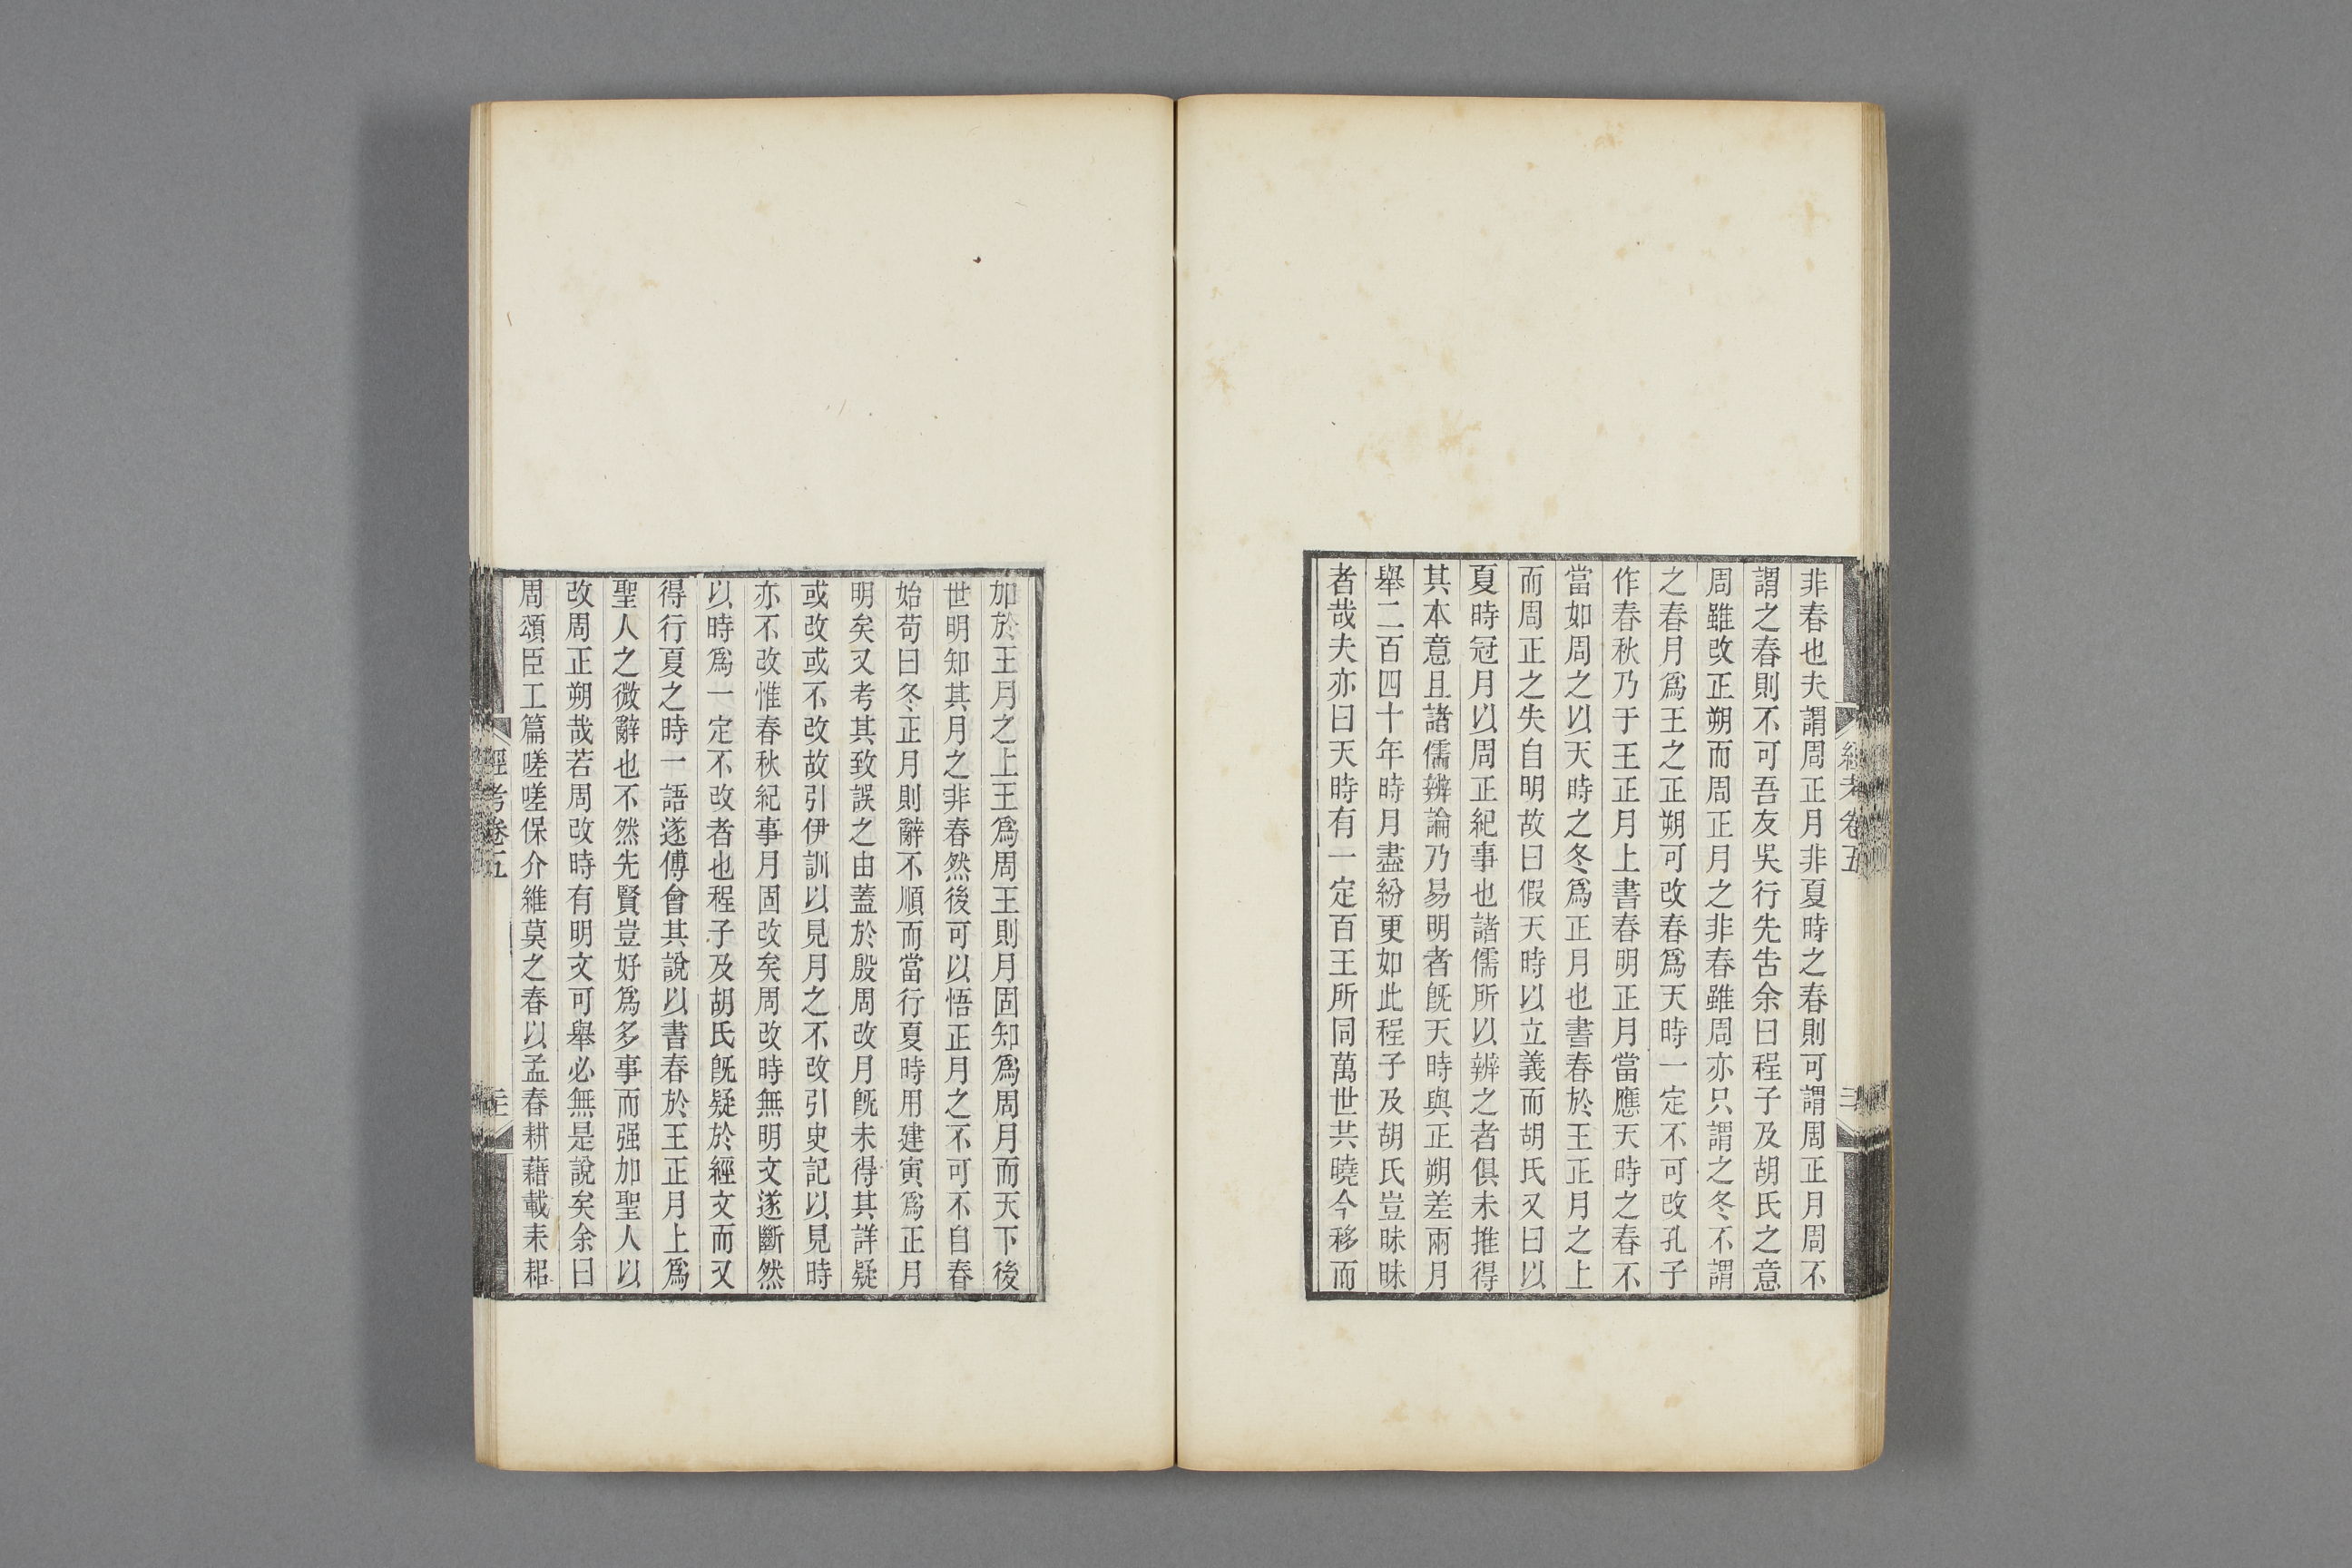 非春也夫謂周正月非夏時之春則可謂周正月周不
謂之春則不可吾友吳行先告余曰程子及胡氏之意
周雖改正朔而周正月之非春雖周亦只謂之冬不謂
之春月爲王之正朔可改春爲天時一定不可改孔子
作春秋乃于王正月上書春明正月當應天時之春不
當如周之以天時之冬爲正月也書春於王正月之上
而周正之失自明故曰假天時以立義而胡氏又曰以
夏時冠月以周正紀事也諸儒所以辨之者俱未推得
其本意且諸儒辨論乃易明者旣天時與正朔差兩月
舉二百四十年時月盡紛更如此程子及胡氏豈昧昧
者哉夫亦曰天時有一定百王所同萬世共曉今移而
經考卷五
加於王月之上王爲周王則月固知爲周月而天下後
世明知其月之非春然後可以悟正月之不可不自春
始苟曰冬正月則辭不順而當行夏時用建寅爲正月
明矣又考其致誤之由蓋於殷周改月旣未得其詳疑
或改或不改故引伊訓以見月之不改引史記以見時
亦不改惟春秋紀事月固改矣周改時無明文遂斷然
以時爲一定不改者也程子及胡氏旣疑於經文而又
得行夏之時一語遂傅會其說以書春於王正月上爲
聖人之微辭也不然先賢豈好爲多事而强加聖人以
改周正朔哉若周改時有明文可舉必無是說矣余曰
周頌臣工篇嗟嗟保介維莫之春以孟春耕藉載耒耜
經考卷五